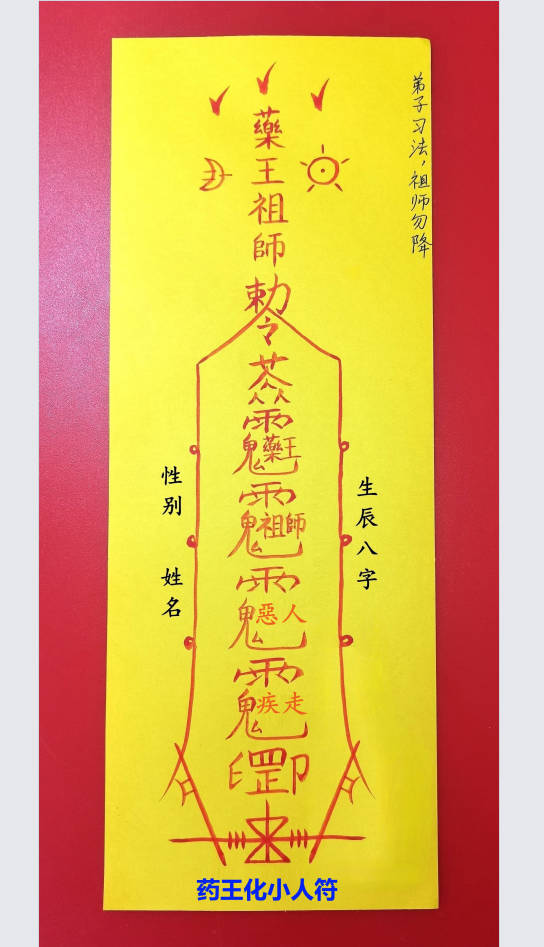 弟子习法，祖师勿降
藥王祖師
勅令
藥王
祖師
惡人
疾走
性别
姓名
生辰八字
药王化小人符